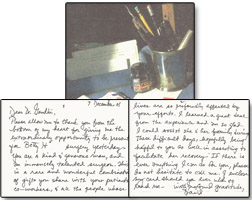 7 December 01
Dear Dr. Gandhi,
Please allow me to thank you from the
bottom of my heart for giving me the
extraordinary opportunity to be present
for Betty H surgery yesterday.
You are a kind & generous man, and
an immensely talented surgeon. This
is a rare and wonderful combination
of gifts you share with your patients,
co-workers, & all the people whose
lives are so profoundly affected by
your efforts. I learned a great deal
from the experience and am so glad
I could assist she & her family during
these difficult days, hopefully being
helpful to you as well in assisting to
facilitate her recovery. If there is
ever anything I can do for you, please
do not hesitate to call me. I enclose
my card should you ever wish or
need me. With profound gratitude,